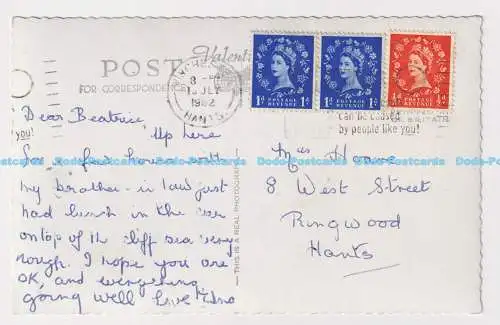 Valenti
POST
FOR CORRESPONDENCE
8
JLY
1962
HANTS.
1D POSTAGE REVENUE 1D
1D POSTAGE REVENUE 1D
½D POSTAGE REVENUE ½D
can be caused
by people like you!
you!
Dear Beatrice
Up here
for a few hours with
my brother-in law just
had lunch in the car
on top of the cliff sea very
rough. I hope you are
OK, and everything
going well Love Edna
THIS IS A REAL PHOTOGRAPH
Mrs House
8 West Street
Ringwood
Hants
Dado-Postcards Dado-Postcards Dado-Postcards Dado-Postcards Dado-Postcards